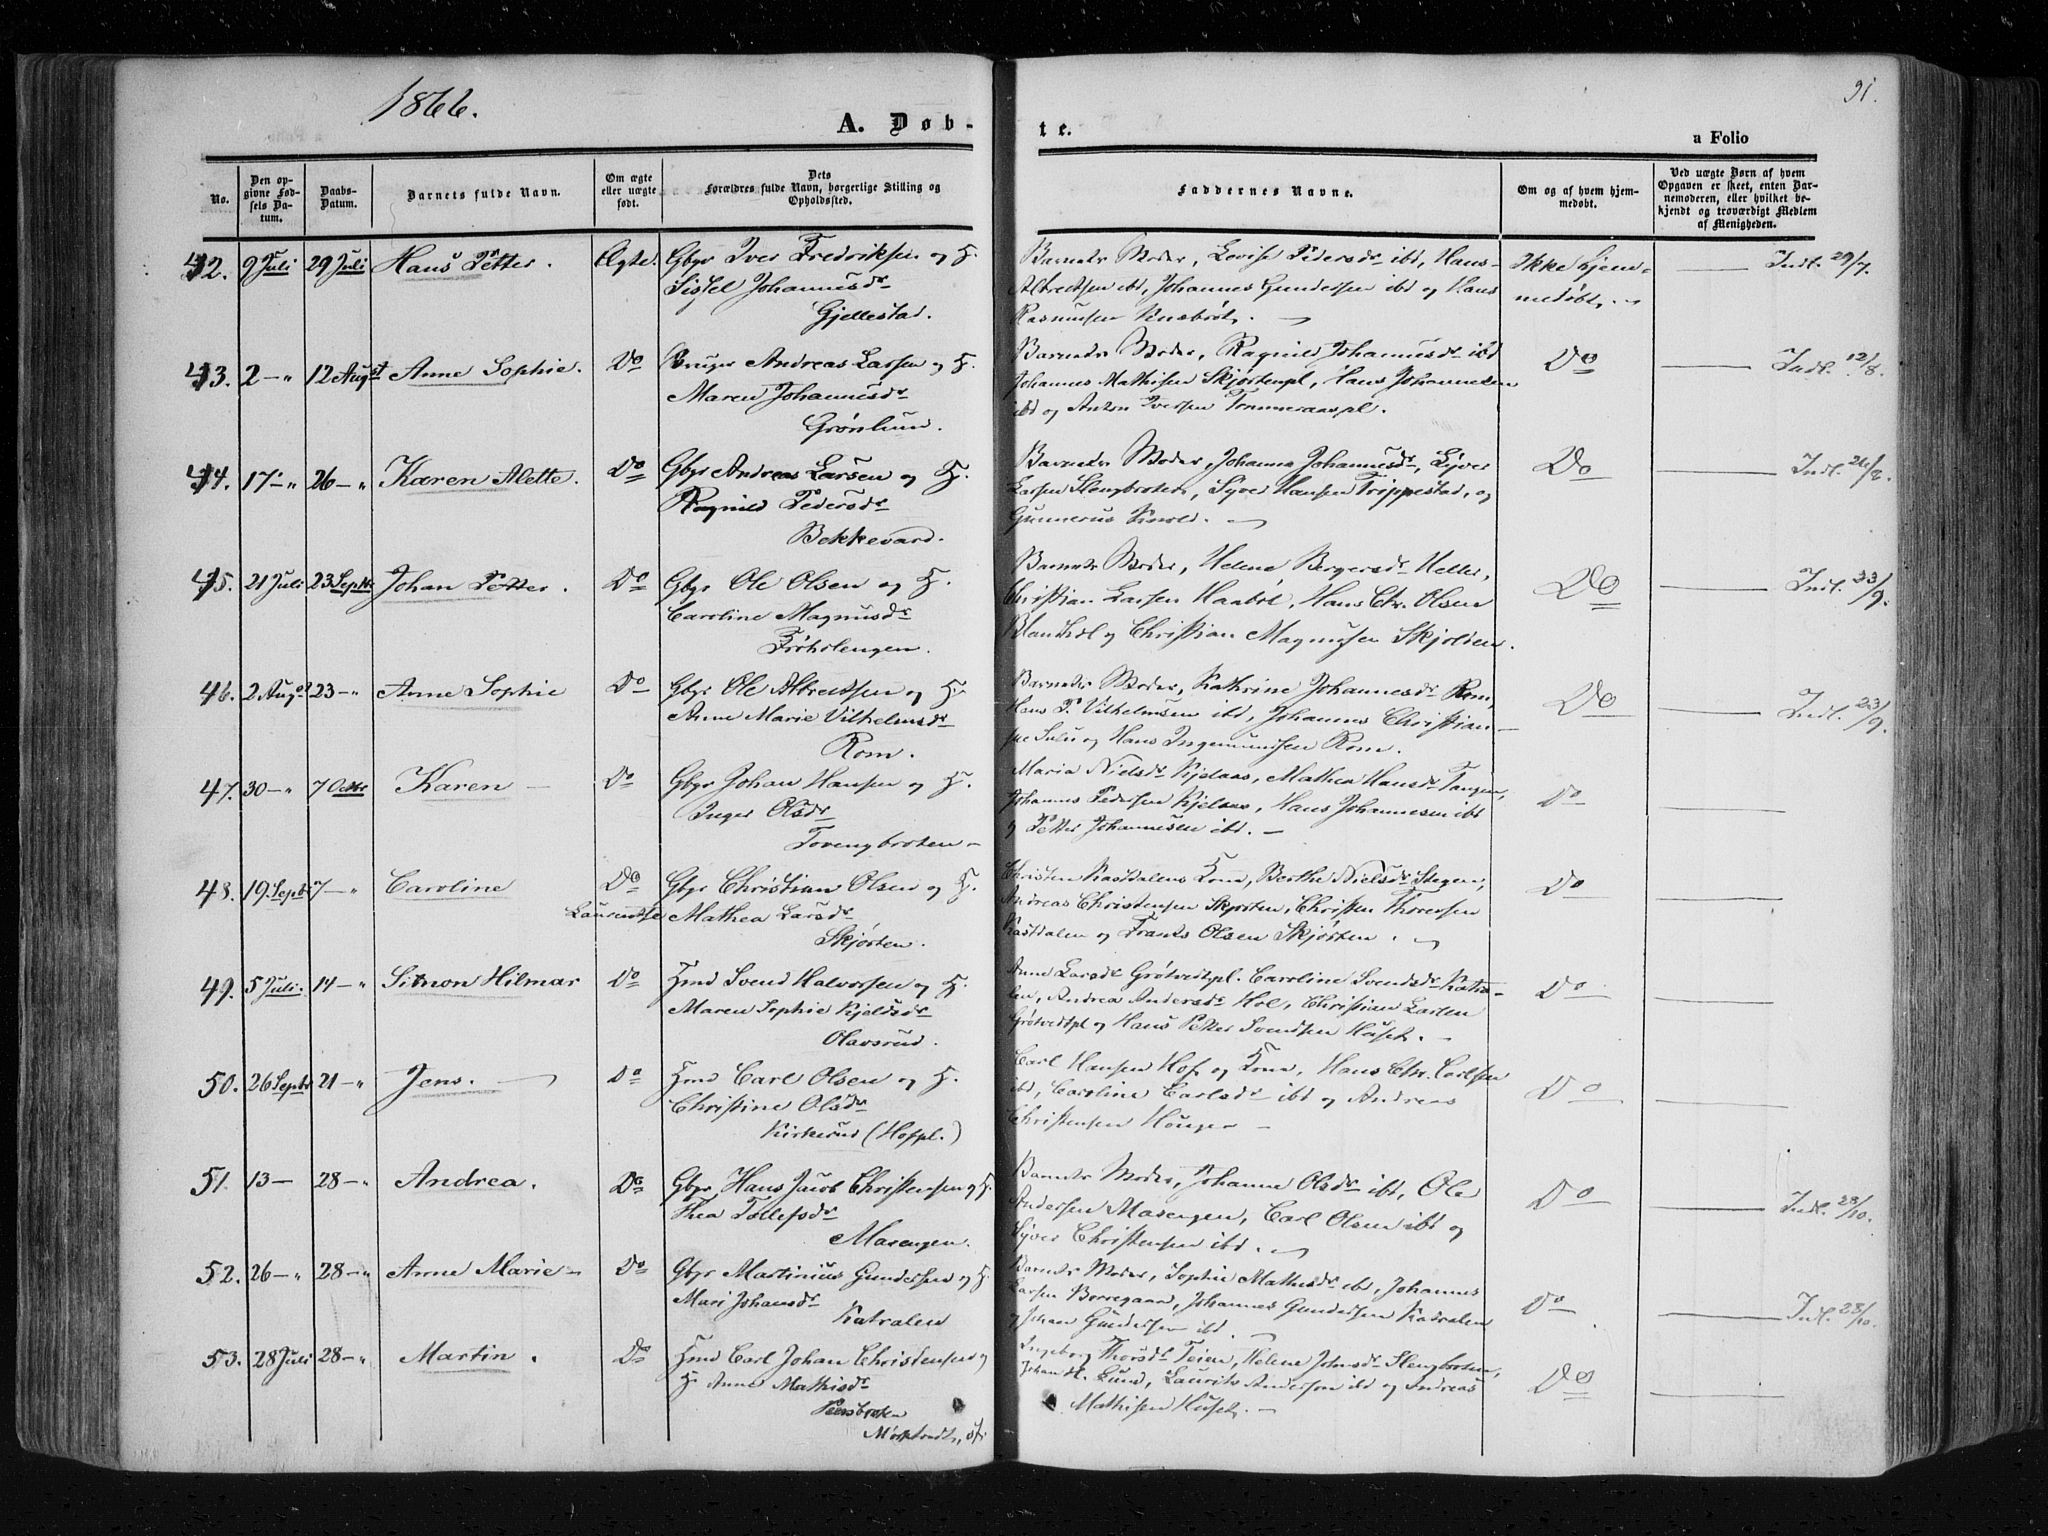 1866.
91.
A. Døb-
te.
a Folio
No.
Den op-
givne Fød-
sels Da-
tum.
Daabs-
Datum.
Barnets fulde Navn.
Om ægte
eller uægte
født.
Dets
Forældres fulde Navn, borgerlige Stilling og
Opholdssted.
Faddernes Navne.
Om og af hvem hjem-
medøbt.
Ved uægte Børn af hvem
Opgaven er skeet, enten Bar-
nemoderen, eller hvilket be-
kjendt og troværdigt Medlem
af Menigheden.
42. 9 Juli 29 Juli Hans Petter. Ægte. Gbr Iver Fredriksen og H.
Sissel Johannesdr
Gjellestad.
Barnets Moder, Lovise Pedersdr ibd, Hans
Albretsen ibd, Johannes Gundersen ibd og Hans
Rasmusen
Ikke hjem-
medøbt.
Indl. 29/7.
43. 2 — " 12 August Anne Sophie. Do Bruger Andreas Larsen og H.
Maren Johannesdr
Grønlund.
Barnets Moder, Ragnild Johannesdr ibd
Johannes Mathisen Skjørtenpl, Hans Johannesen
ibd og Anton Iversen
Do
Indl. 12/8.
44. 17 — " 26 — " Karen Alette. Do Gbr Andreas Larsen og H.
Ragnild Pedersdr
Bekkevard.
Barnets Moder, Johanna Johannesdr, Syver
Larsen Slengbroten, Syver Hansen Trippestad, og
Gunnerus Knold.
Do
Indl. 26/8.
45. 21 Juli 23 Septbr Johan Petter. Do Gbr Ole Olsen og H.
Caroline Magnusdr
Barnets Moder, Helene Bergersdr Heller,
Christian Larsen Haabøl, Hans Chr. Olsen
og Christian Magnusen Skjolden.
Do
Indl. 23/9.
46. 2 Aug 23 — " Anne Sophie Do Gbr Ole Albretsen og H.
Anne Marie Vilhelmsdr
Rom.
Barnets Moder, Kathrine Johannesdr Rom,
Hans P. Vilhelmsen ibd, Johannes Christian-
sen Sulu og Hans Ingemundsen Rom.
Do
Indl. 23/9.
47. 30 — " 7 Octbr Karen — Do Gbr Johan Hansen og H.
Inger Olsdr
Tovengbroten
Maria Nielsdr Kjelaas, Mathea Hansdr Tangen,
Johannes Pedersen Kjelaas, Hans Johannesen ibd
og Petter Johannesen ibd. —
Do
48. 19 Septbr 7 — " Caroline Do Gbr Christian Olsen og H.
Laurentse Mathea Larsdr
Skjørten.
Christen Kastdalens Kone, Berthe Nielsdr Stegen,
Andreas Christensen Skjørten, Christen Thoresen
Kastdalen og Frants Olsen Skjørten.
Do
49. 5 Juli. 14 — " Simon Hilmar Do Hmd Svend Halvorsen og H.
Maren Sophie Kjeldsdr
Olavsrud.
Anne Larsdr Grøtvedtpl. Caroline Svendsdr Katra-
len, Andrea Andersdr Hol, Christian Larsen
Grøtvedtpl og Hans Petter Svendsen Huset. —
Do
50. 26 Septbr 21 — " Jens. Do Hmd Carl Olsen og H.
Christine Olsdr
Kirkerud (Hofpl.)
Carl Hansen Hof og Kone, Hans Chr. Carlsen
ibd, Caroline Carlsdr ibd og Andreas
Christensen Houger —
Do
51 13 — 28 — " Andrea. Do Gbr Hans Jacob Christensen og H.
Thea Tollefsdr
Masengen.
Barnets Moder, Johanne Olsdr ibd, Ole
Andersen Masengen, Carl Olsen ibd og
Syver Christensen ibd.
Do
Indl. 28/10.
52. 26 — " 28 — " Anne Marie — Do Gbr Martinius Gundersen og H.
Mari Johansdr
Katralen
Barnets Moder, Sophie Mathisdr ibd, Johannes
Larsen Borregaard, Johannes Gundersen Katralen
og Johan Gundersen ibd.
Do
Indl. 28/10.
53. 28 Juli 28 — " Martin. Do Hmd Carl Johan Christensen og
H. Anne Mathisdr
Ingeborg Thorsdr Teien, Helene Johnsdr Slengbroten,
Johan H. Lund, Laurits Andersen ibd og Andreas
Mathisen Huset. —
Do